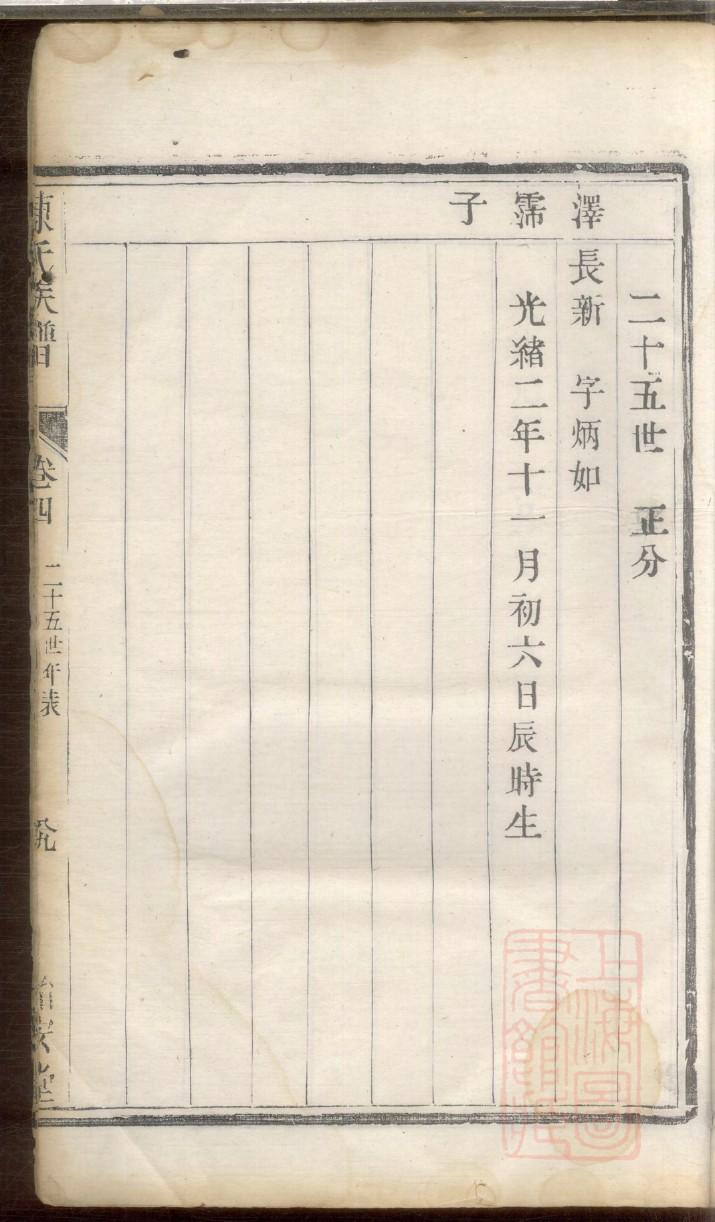 二十五世　正分
澤霈子
長新　字炳如
光緒二年十一月初六日辰時生
陳氏族譜
卷四
二十五世年表
上海圖書館藏